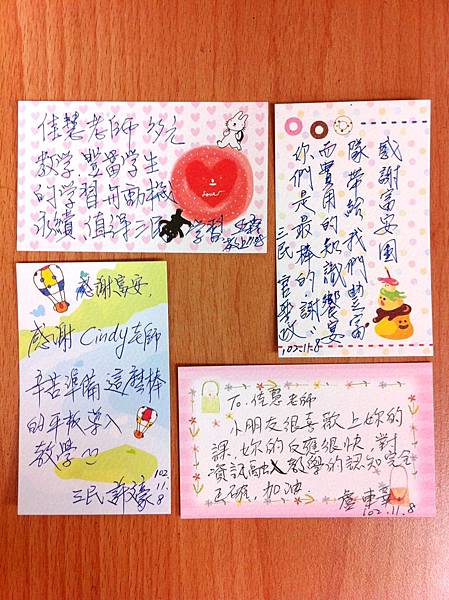 佳慧老師 多元
教学.豐富学生
的学習
永續.值得三民 学習
love
感謝富安團
隊帶給我們豐富
而實用的知識饗宴
你們是最棒的,謝謝
三民
102.11.8
感謝富安,
感謝 Cindy老師
辛苦準備這麼棒
的平板導入
教学
三民
102
11.
8
To. 佳慧老師
小朋友很喜歡上妳的
課,妳的反應很快,對
資訊融入教學的認知完全
正確,加油
102.11.8